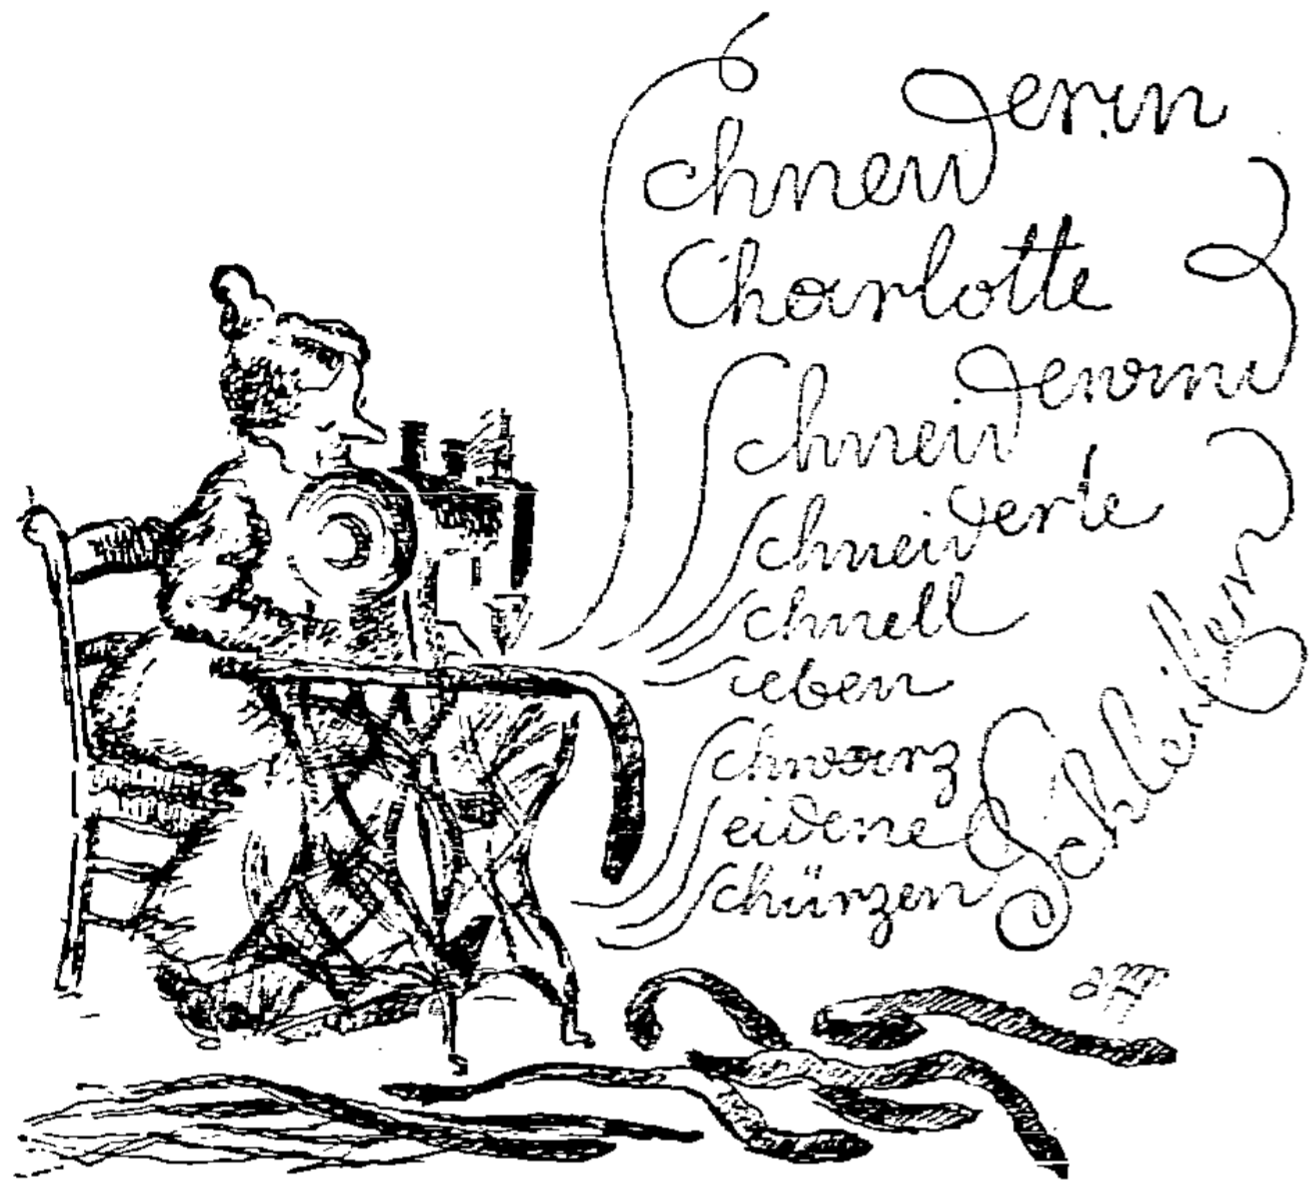 Schneiderin
Charlotte
Schneidewind
schneiderte
schnell
sieben
schwarz
seidene
schürzen
Schleifen